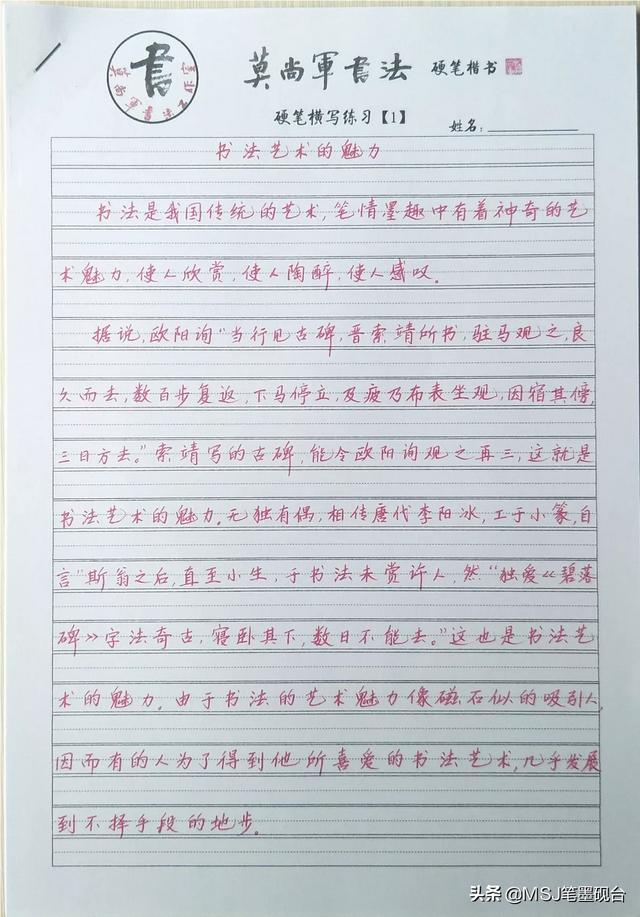 書
莫尚軍書法 硬笔楷书
硬笔横写练习【1】
姓名:
书法艺术的魅力
书法是我国传统的艺术,笔情墨趣中有着神奇的艺
术魅力,使人欣赏,使人陶醉,使人感叹。
据说,欧阳询"当行见古碑,晋索靖所书,驻马观之,良
久而去,数百步复返,下马停立,及疲乃布表坐观,因宿其傍,
三日方去。"索靖写的古碑,能令欧阳询观之再三,这就是
书法艺术的魅力。无独有偶,相传唐代李阳冰,工于小篆,自
言"斯翁之后,直至小生,于书法未赏许人,然"独爱《碧落
碑》字法奇古,寝卧其下,数日不能去。"这也是书法艺
术的魅力。由于书法的艺术魅力像磁石似的吸引人,
因而有的人为了得到他所喜爱的书法艺术,几乎发展
到不择手段的地步。
头条 @MSJ笔墨砚台